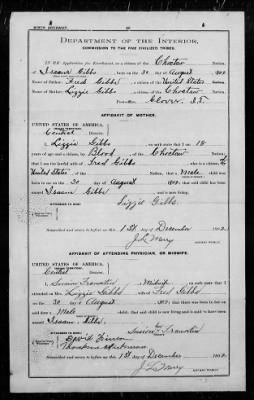 BIRTH AFFIDAVIT.
Department of the Interior,
COMMISSION TO THE FIVE CIVILIZED TRIBES.
IN RE Application for Enrollment, as a citizen of the Choctaw Nation,
of Isaam Gibbs, born on the 30 day of August, 1902
Name of Father: Fred Gibbs a citizen of the United States Nation.
Name of Mother: Lizzie Gibbs a citizen of the Choctaw Nation.
Post-office Glover I.T.
AFFIDAVIT OF MOTHER.
UNITED STATES OF AMERICA,
INDIAN TERRITORY,
Central District.
I, Lizzie Gibbs, on oath state that I am 18
years of age and a citizen by Blood, of the Choctaw Nation;
that I am the lawful wife of Fred Gibbs, who is a citizen of the
United States Nation; that a Male child was
born to me on the 30 day of August, 1902, that said child has been
named Isaam Gibbs, and is now living.
Lizzie Gibbs
WITNESSES TO MARK:
Subscribed and sworn to before me this 1st day of December, 1902.
NOTARY PUBLIC.
AFFIDAVIT OF ATTENDING PHYSICIAN, OR MIDWIFE.
UNITED STATES OF AMERICA,
INDIAN TERRITORY,
Central District.
I, a Midwife, on oath state that I
attended on Mrs. Lizzie Gibbs, wife of Fred Gibbs
on the 30 day of August, 1902; that there was born to her on said
date a Male child; that said child is now living and is said to have been
named Isaam Gibbs.
WITNESSES TO MARK:
David
Subscribed and sworn to before me this 1st day of December, 1902.
NOTARY PUBLIC.